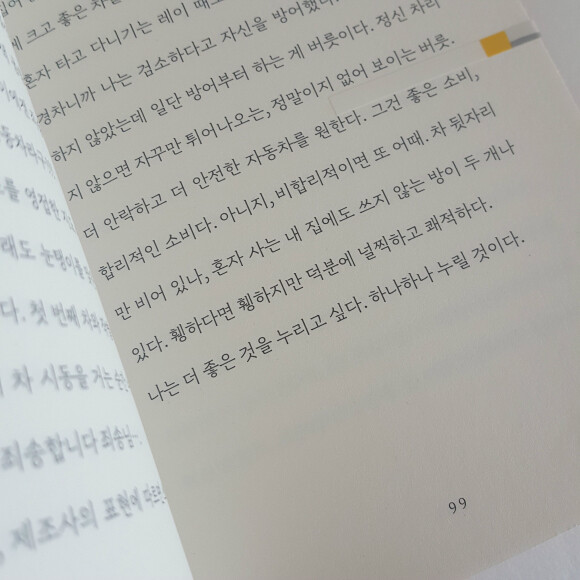 크고 좋은 차를
혼자 타고 다니기는 레이 때도
경차니까 나는 검소하다고 자신을 방어했다.
하지 않았는데 일단 방어부터 하는 게 버릇이다. 정신 차리
지 않으면 자꾸만 튀어나오는, 정말이지 없어 보이는 버릇.
더 안락하고 더 안전한 자동차를 원한다. 그건 좋은 소비,
합리적인 소비다. 아니지, 비합리적이면 또 어때. 차 뒷자리
만 비어 있나, 혼자 사는 내 집에도 쓰지 않는 방이 두 개나
있다. 휑하다면 휑하지만 덕분에 널찍하고 쾌적하다.
나는 더 좋은 것을 누리고 싶다. 하나하나 누릴 것이다.
99
래도 눈탱이를
다. 첫 번째 차와
차 시동을 거는 순간
죄송합니다 죄송
제조사의 표현에 따르